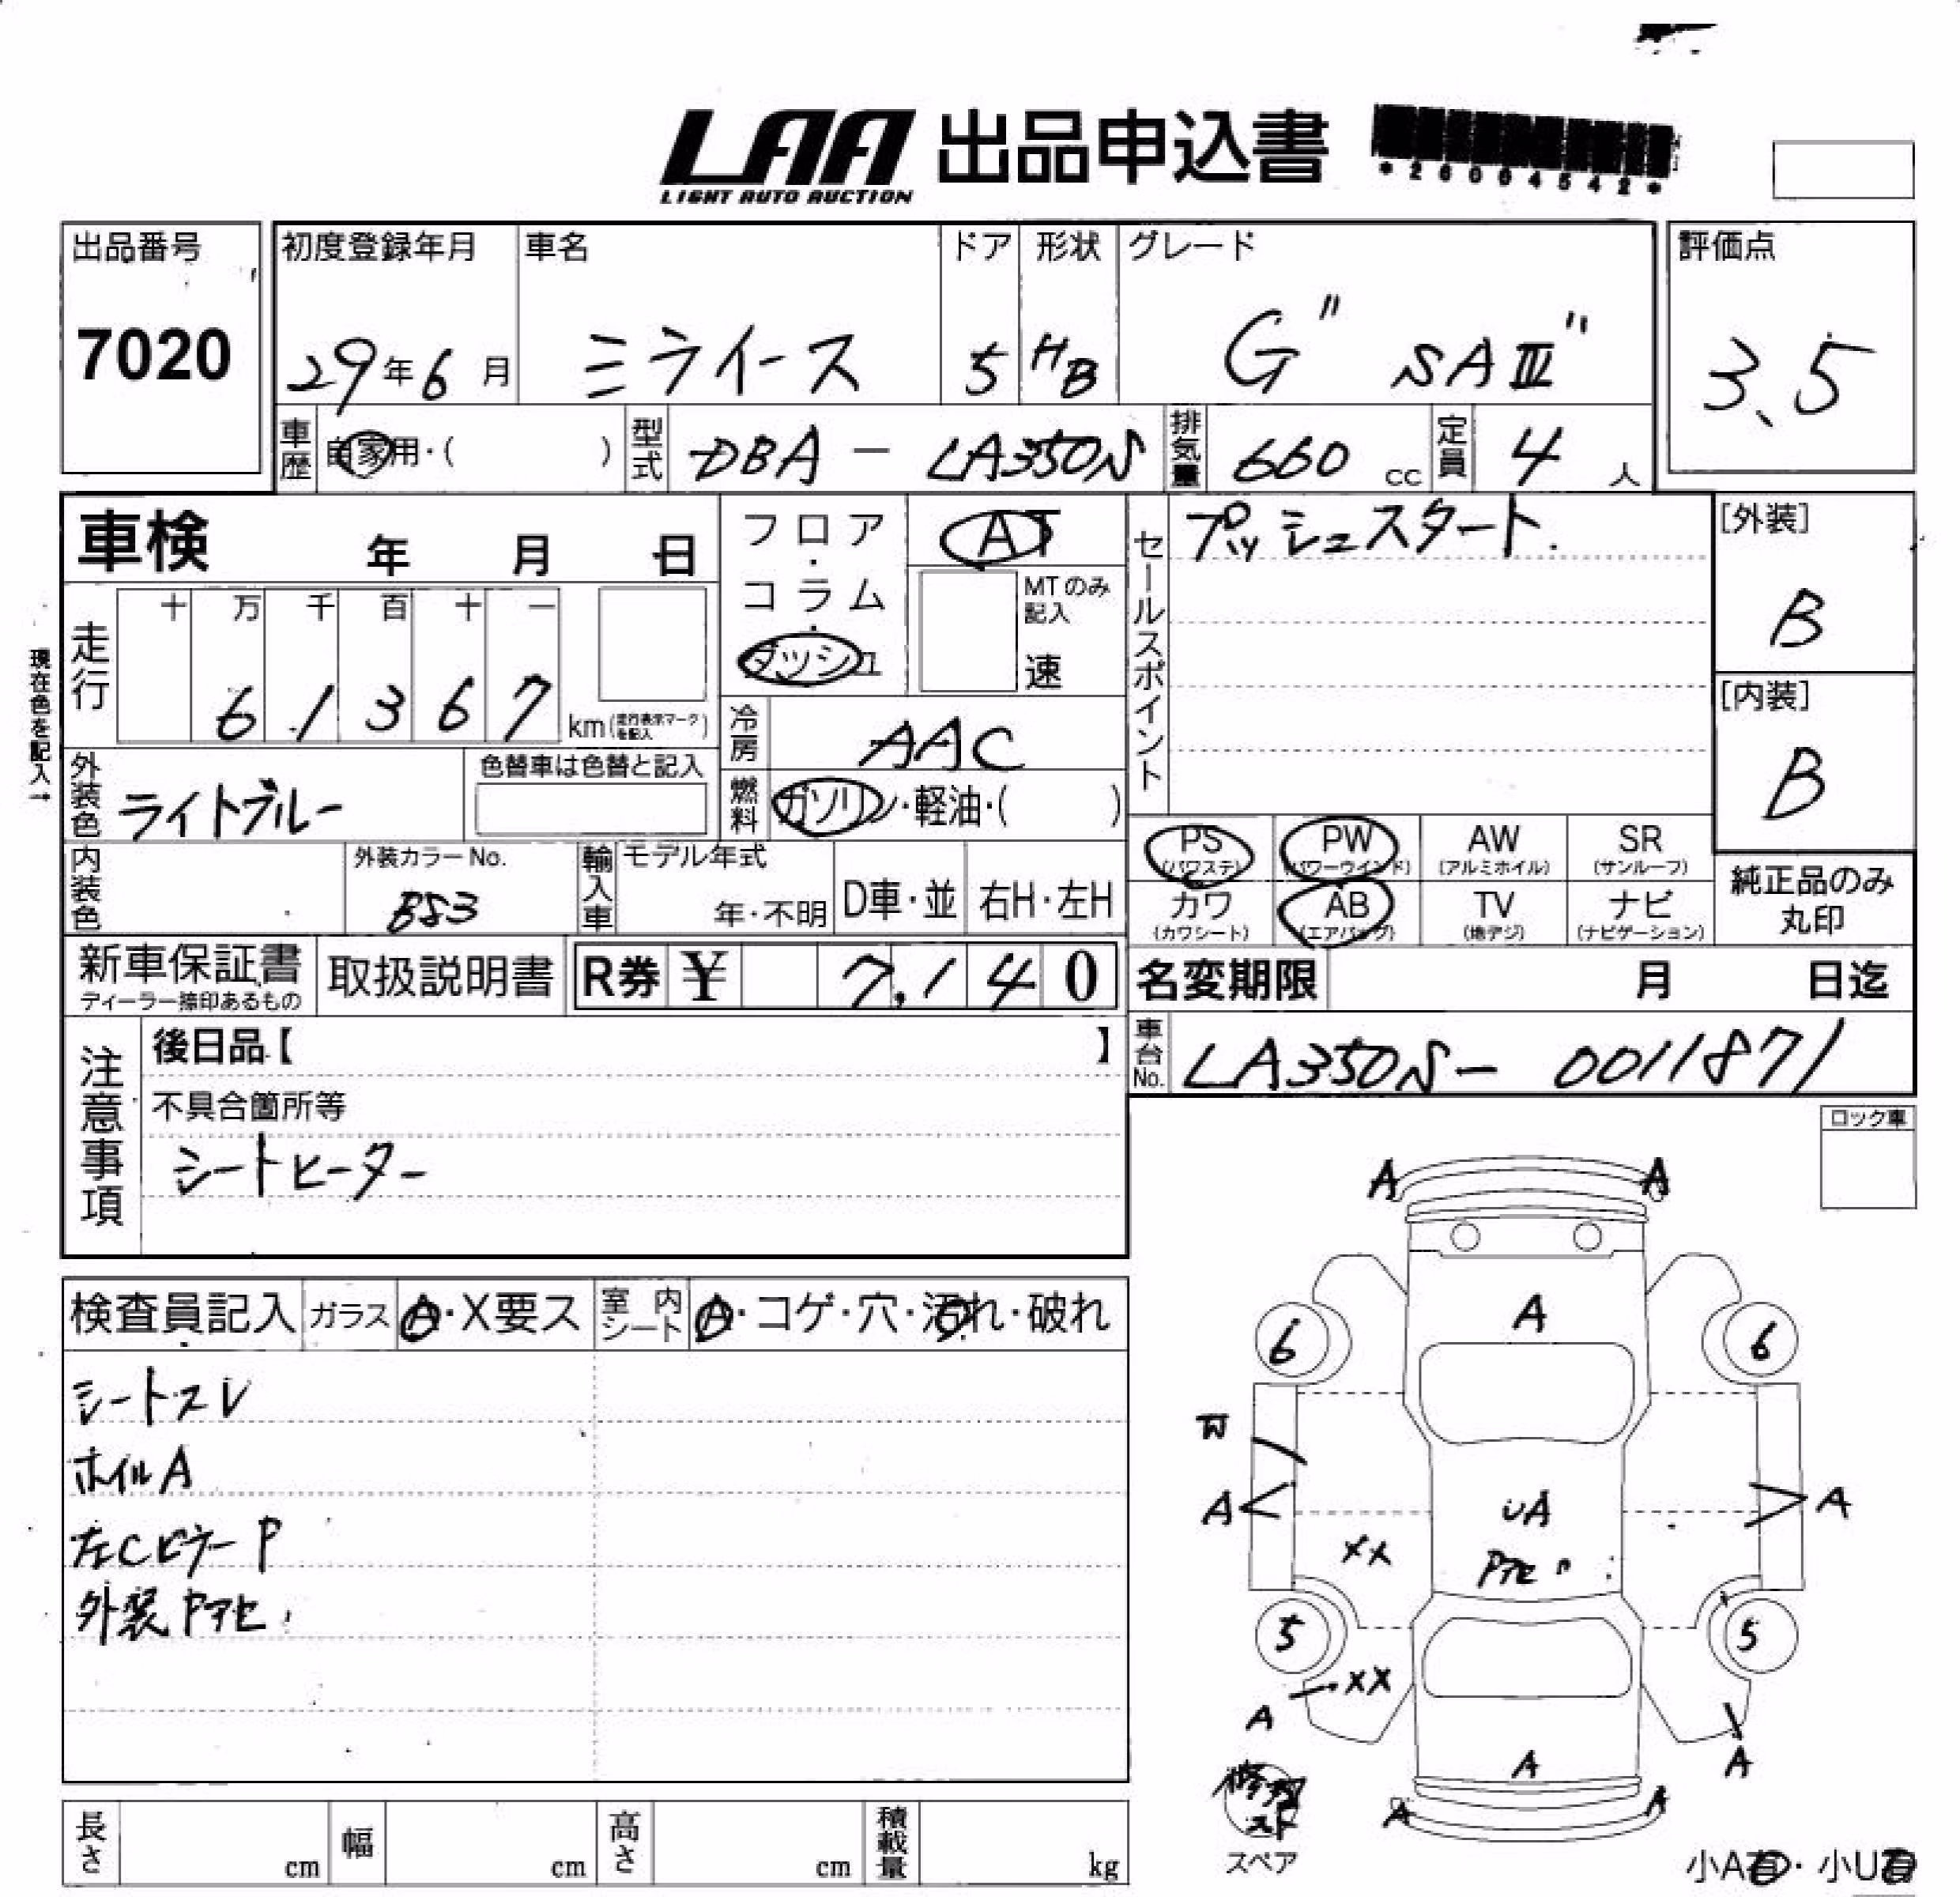 LAA 出品申込書
LIGHT AUTO AUCTION
*26004542*
出品番号 初度登録年月 車名 ドア 形状 グレード 評価点
7020 29年6月 ミライース 5 HB G" SAⅢ" 3.5
車歴 自家用・( ) 型式 DBA - LA350S 排気量 660 cc 定員 4 人
車検 年 月 日
フロア・コラム・ダッシュ
AT
MTのみ記入
速
セールスポイント
プッシュスタート.
[外装]
B
走行 十 万 千 百 十 一
6 1 3 6 7 km(走行表示マークを記入)
現在色を記入→
[内装]
B
冷房 AAC
外装色 ライトブルー 色替車は色替と記入
燃料 ガソリン・軽油・( )
PS (パワステ) PW (パワーウインド) AW (アルミホイル) SR (サンルーフ)
カワ (カワシート) AB (エアバッグ) TV (地デジ) ナビ (ナビゲーション)
純正品のみ丸印
内装色 外装カラーNo. B53 輸入車 モデル年式 年・不明 D車・並 右H・左H
新車保証書 取扱説明書 R券 ¥ 7,140
ディーラー捺印あるもの
名変期限 月 日迄
車台No. LA350S- 0011871
注意事項
後日品【 】
不具合箇所等
シートヒーター
ロック車
検査員記入 ガラス A・X要ス 室内シート A・コゲ・穴・汚れ・破れ
シートスレ
ホイルA
左CピラーP
外装Pアセ
A A
A
6 6
A A
UA
XX
Pアセ
5 5
XX
A A
A
A A
修理
スペア
小A有・小U有
長さ cm 幅 cm 高さ cm 積載量 kg